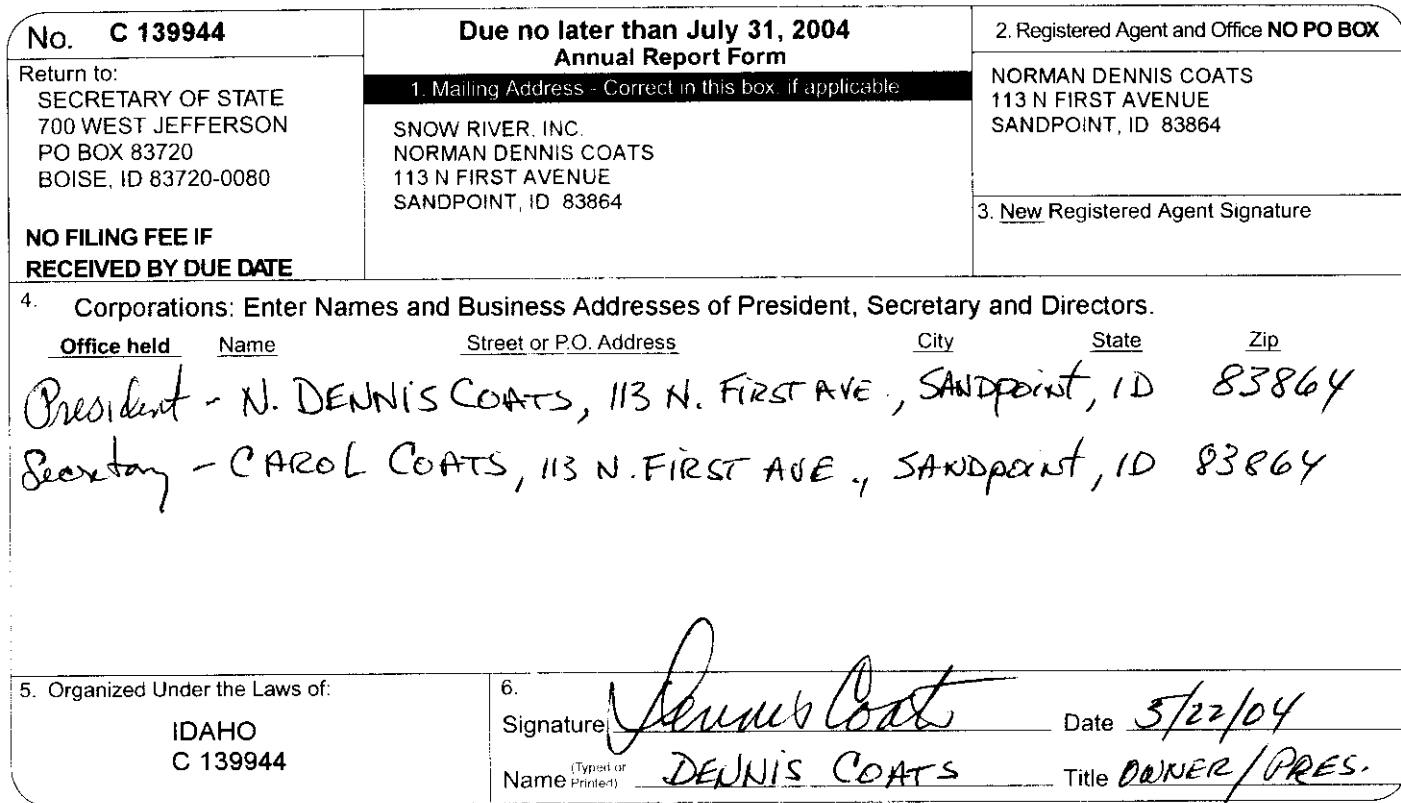 No. C 139944
Return to:
SECRETARY OF STATE
700 WEST JEFFERSON
PO BOX 83720
BOISE, ID 83720-0080
NO FILING FEE IF
RECEIVED BY DUE DATE
Due no later than July 31, 2004
Annual Report Form
1. Mailing Address - Correct in this box, if applicable
SNOW RIVER, INC.
NORMAN DENNIS COATS
113 N FIRST AVENUE
SANDPOINT, ID 83864
2. Registered Agent and Office NO PO BOX
NORMAN DENNIS COATS
113 N FIRST AVENUE
SANDPOINT, ID 83864
3. New Registered Agent Signature
4. Corporations: Enter Names and Business Addresses of President, Secretary and Directors.
Office held Name Street or P.O. Address City State Zip
President - N. DENNIS COATS, 113 N. FIRST AVE., SANDPOINT, ID 83864
Secretary - CAROL COATS, 113 N. FIRST AVE., SANDPOINT, ID 83864
5. Organized Under the Laws of:
IDAHO
C 139944
6.
Signature Dennis Coats Date 5/22/04
Name (Typed or Printed) DENNIS COATS Title OWNER/PRES.